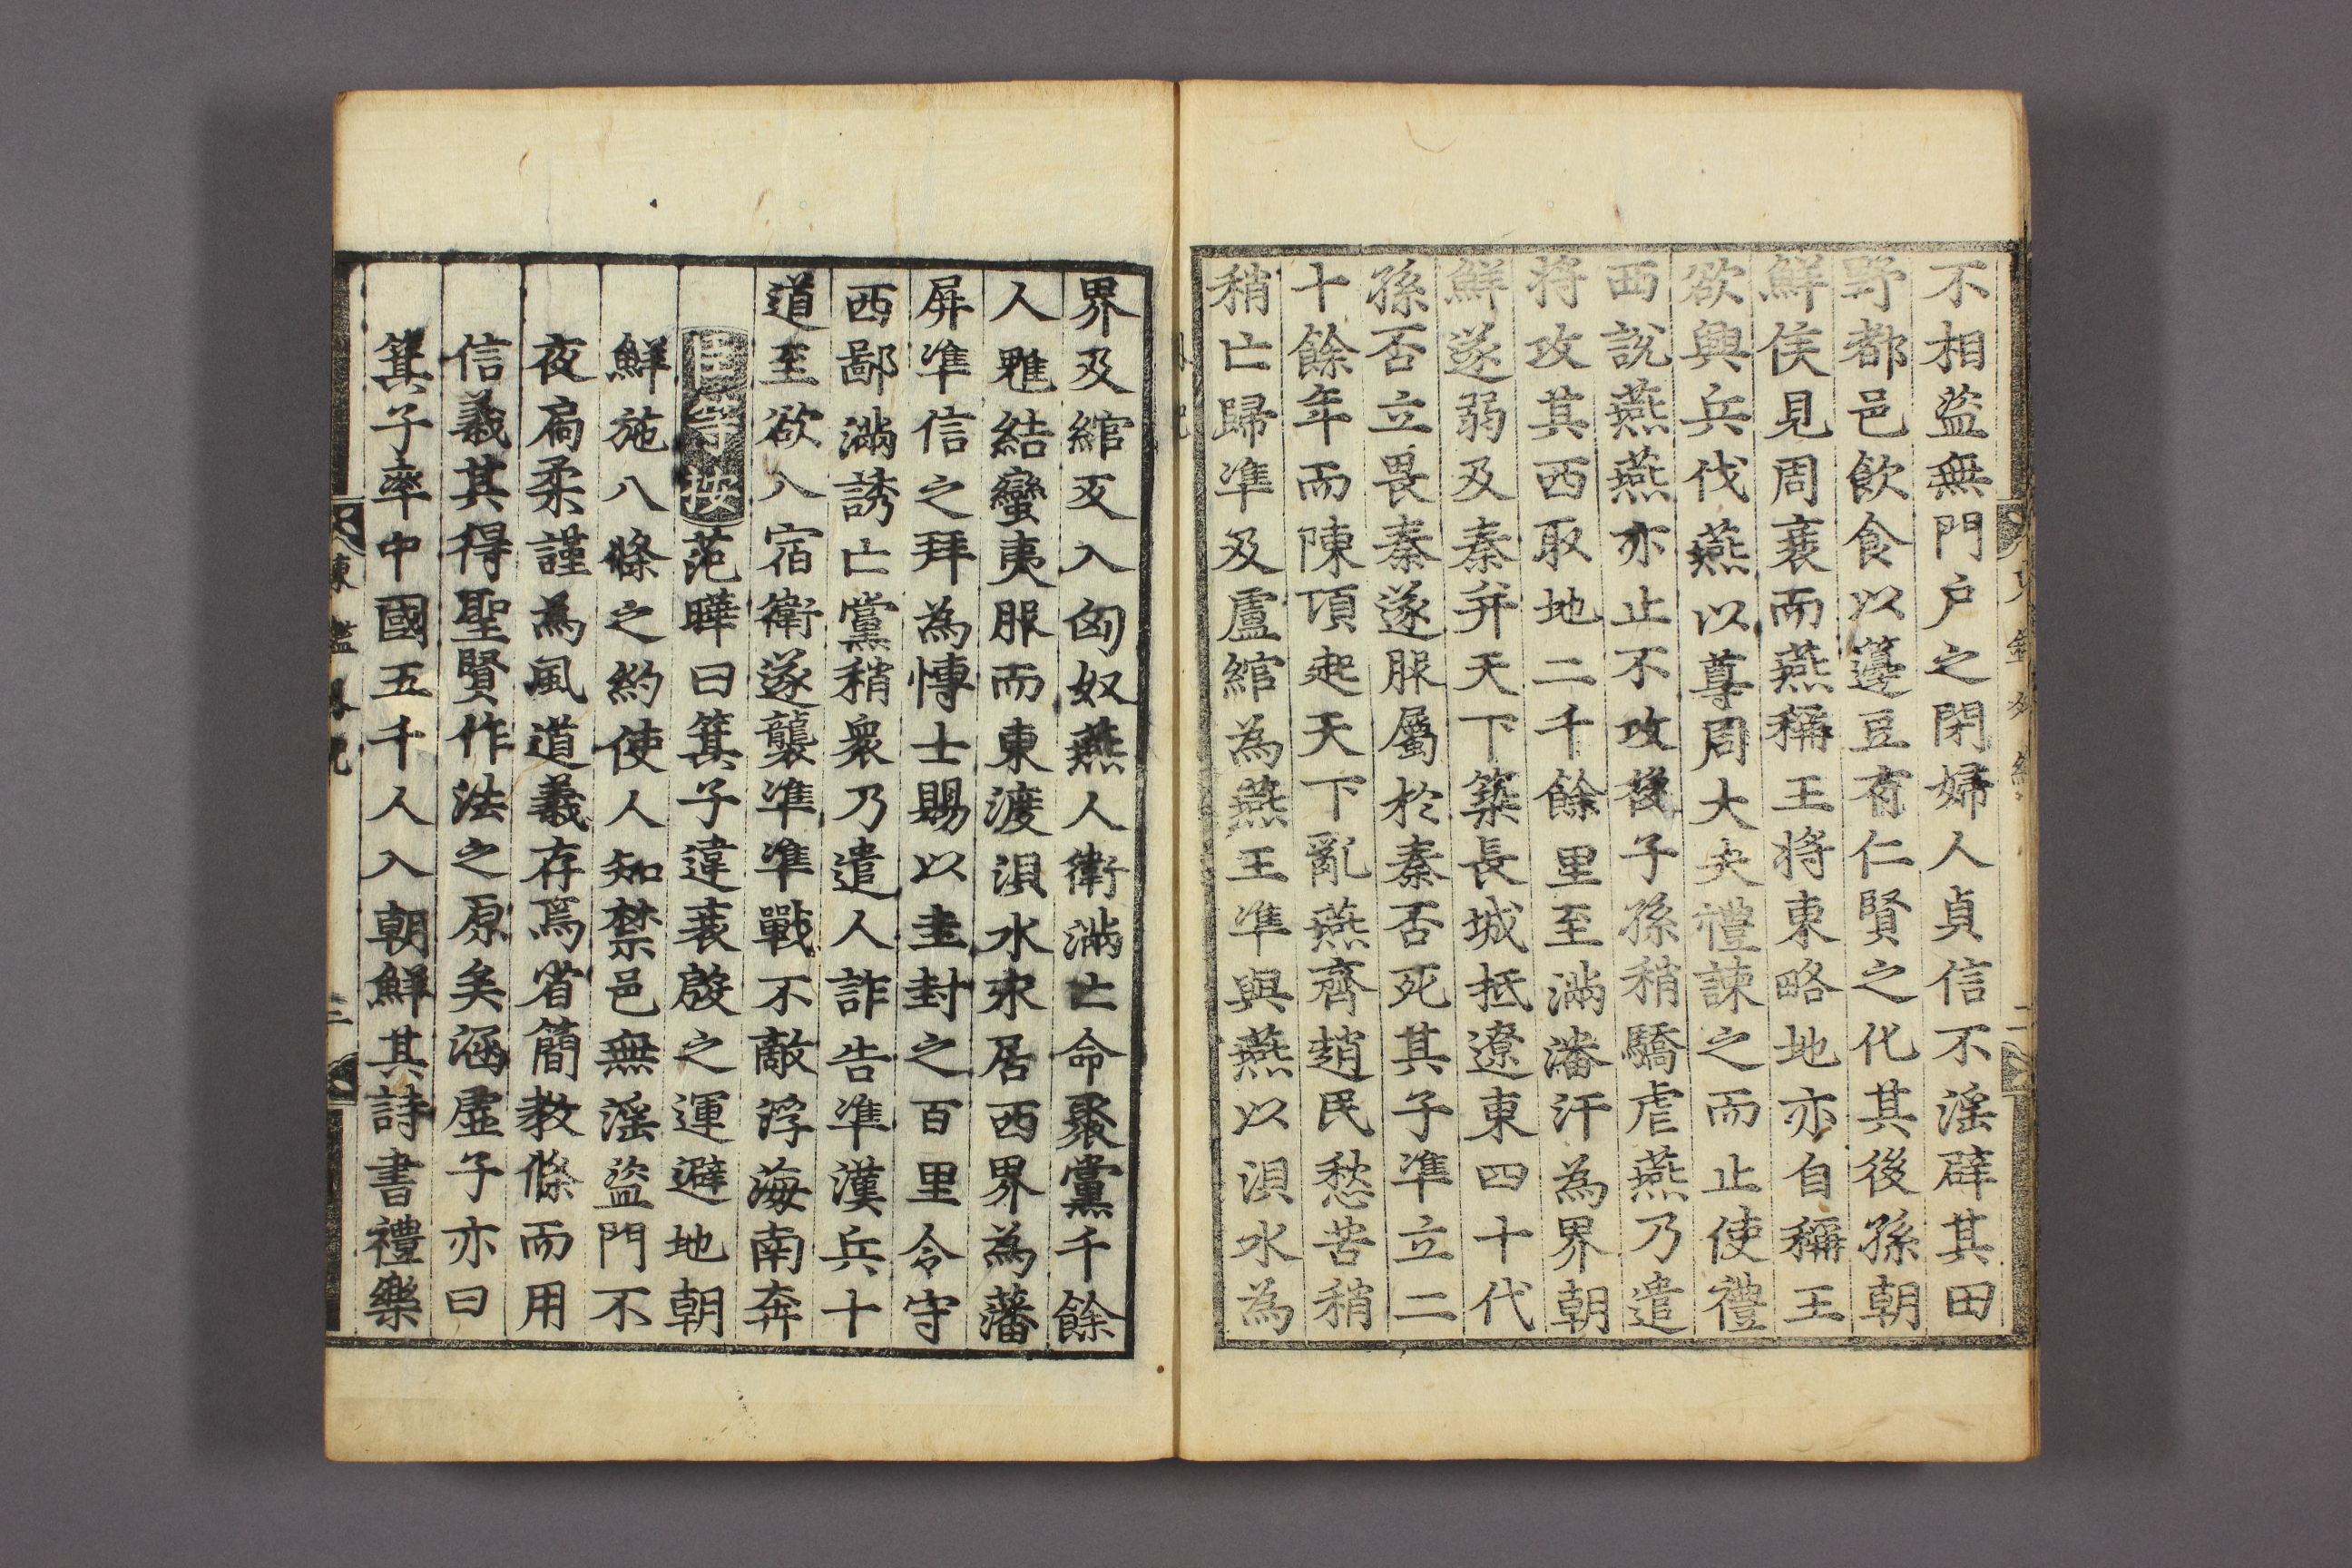 不相盜無門戶之閉婦人貞信不淫辟其田
野都邑飮食以籩豆有仁賢之化其後孫朝
鮮侯見周衰而燕稱王將東略地亦自稱王
欲興兵伐燕以尊周大夫禮諫之而止使禮
西說燕燕亦止不攻後子孫稍驕虐燕乃遣
將攻其西取地二千餘里至滿潘汗爲界朝
鮮遂弱及秦幷天下築長城抵遼東四十代
孫否立畏秦遂服屬於秦否死其子準立二
十餘年而陳項起天下亂燕齊趙民愁苦稍
稍亡歸準及盧綰爲燕王準與燕以浿水爲
界及綰反入匈奴燕人衛滿亡命聚黨千餘
人魋結蠻夷服而東渡浿水來居西界爲藩
屏準信之拜爲博士賜以圭封之百里令守
西鄙滿誘亡黨稍衆乃遣人詐告準漢兵十
道至欲入宿衛遂襲準準戰不敵浮海南奔
臣等按范曄曰箕子違衰殷之運避地朝
鮮施八條之約使人知禁邑無淫盜門不
夜扃柔謹爲風道義存焉省簡教條而用
信義其得聖賢作法之原矣涵虛子亦曰
箕子率中國五千人入朝鮮其詩書禮樂